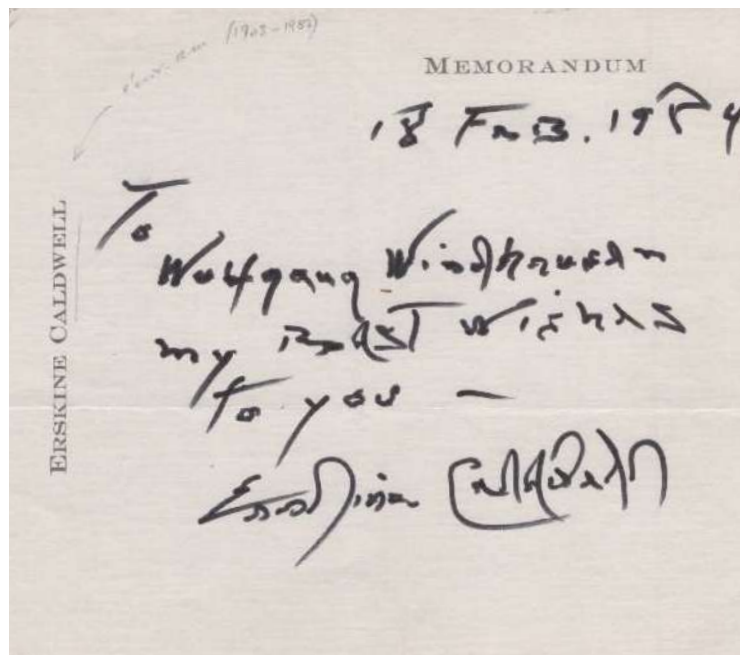 (1903-1987)
MEMORANDUM
18 FEB. 1984
ERSKINE CALDWELL
To
Wolfgang Windhausen
my BEST Wishes
To you —
Erskine Caldwell